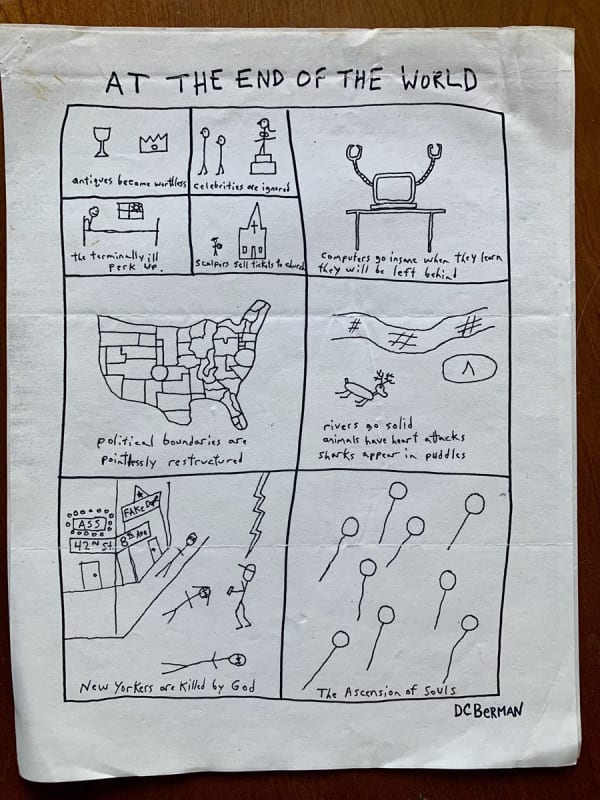 AT THE END OF THE WORLD
antiques become worthless
celebrities are ignored
the terminally ill
perk up.
scalpers sell tickets to church
computers go insane when they learn
they will be left behind
political boundaries are
pointlessly restructured
rivers go solid
animals have heart attacks
sharks appear in puddles
ASS
42ND St.
FAKE Dope
8th Ave
New Yorkers are Killed by God
The Ascension of Souls
DC BERMAN